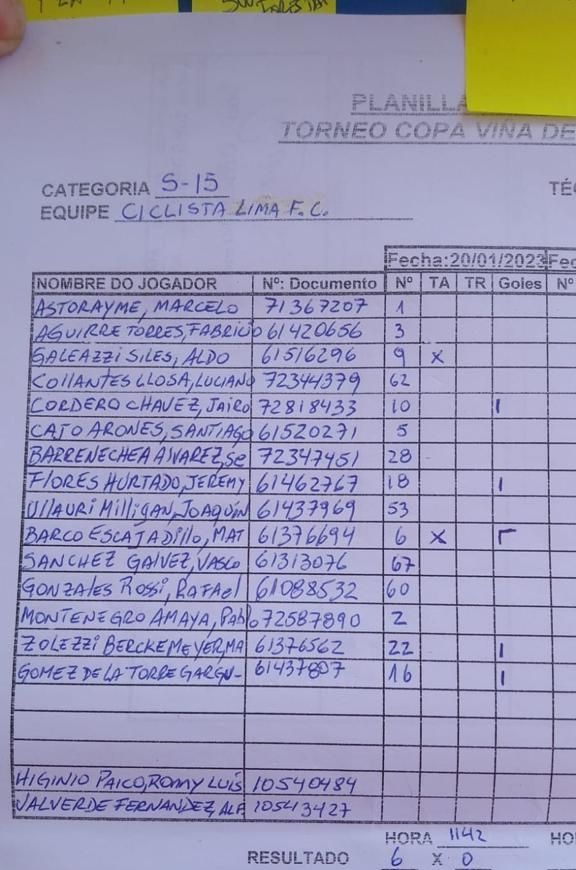 PLANILLA
TORNEO COPA VIÑA DE
CATEGORIA S-15 TÉC
EQUIPE CICLISTA LIMA F.C.
Fecha:20/01/2023 Fec
NOMBRE DO JOGADOR Nº: Documento Nº TA TR Goles Nº
ASTORAYME, MARCELO 71367207 1
AGUIRRE TORRES, FABRICIO 61420656 3
GALEAZZI SILES, ALDO 61516296 9 X
COllANTES LLOSA, LUCIANO 72344379 62
CORDERO CHAVEZ, JAIRO 72818433 10 I
CAJO ARONES, SANTIAGO 61520271 5
BARRENECHEA ALVAREZ, SE 72347451 28
FLORES HURTADO, JEREMY 61462767 18 I
UllAURI Milligan, JOAQUIN 61437969 53
BARCO ESCAJADillo, MAT 61376694 6 X Γ
SANCHEZ GALVEZ, VASCO 61313076 67
GONZALES ROSSi, RAFAEl 61088532 60
MONTENEGRO AMAYA, Pablo 72587890 2
ZOLEZZI BERCKEMEYER, MA 61376562 22 I
GOMEZ DE LA TORRE GARGU- 61437807 16 I
HIGINIO PAICO, ROMMY LUÍS 10540484
VALVERDE FERNANDEZ, ALF 10543427
HORA 1142 HO
RESULTADO 6 X 0